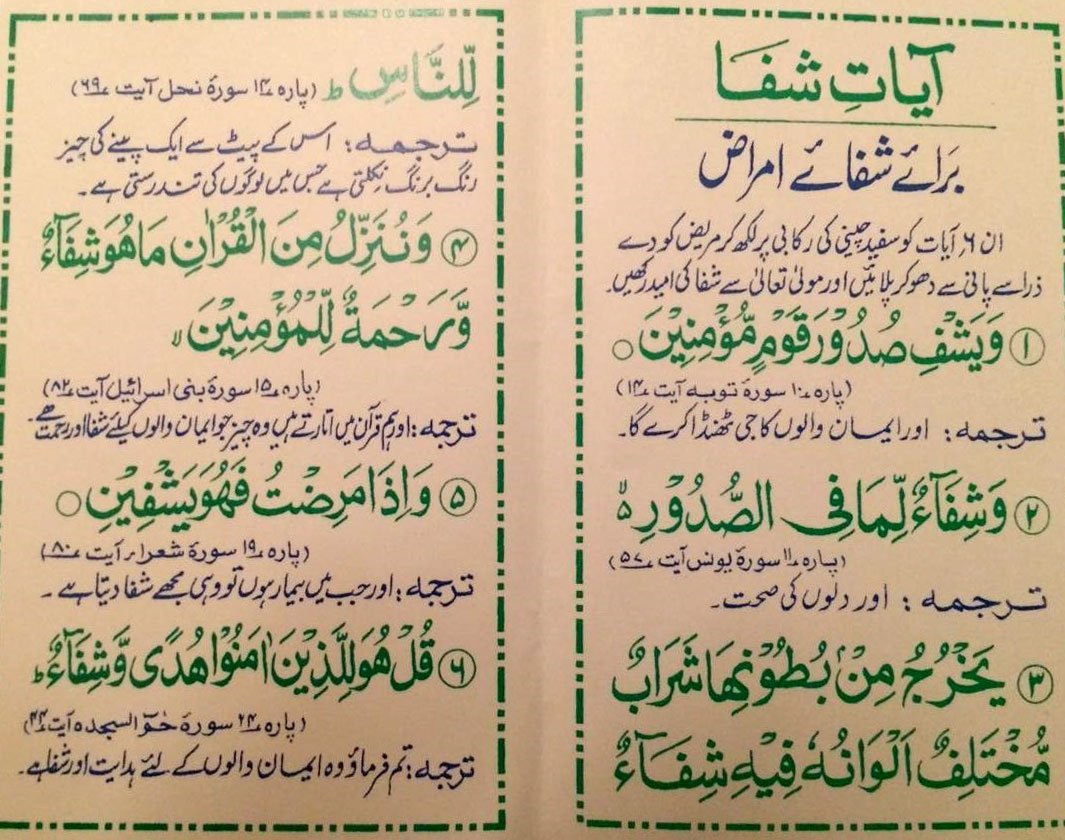 آیاتِ شفا
بَرائے شفائے امراض
ان ۶ آیات کو سفید چینی کی رکابی پر لکھ کر مریض کو دے
ذرا سے پانی سے دھو کر پلائیں اور مولیٰ تعالیٰ سے شفا کی امید رکھیں۔
۱ وَيَشْفِ صُدُوْرَ قَوْمٍ مُّؤْمِنِيْنَ ○
(پارہ ۱۰ سورۃ توبہ آیت ۱۴)
ترجمہ: اور ایمان والوں کا جی ٹھنڈا کرے گا۔
۲ وَشِفَآءٌ لِّمَا فِى الصُّدُوْرِ ۵ۙ
(پارہ ۱۱ سورۃ یونس آیت ۵۷)
ترجمہ: اور دلوں کی صحت۔
۳ يَخْرُجُ مِنْۢ بُطُوْنِهَا شَرَابٌ
مُّخْتَلِفٌ اَلْوَانُهٗ فِيْهِ شِفَآءٌ
لِّلنَّاسِ ط (پارہ ۱۴ سورۃ نحل آیت ۶۹)
ترجمہ: اس کے پیٹ سے ایک پینے کی چیز
رنگ برنگ نکلتی ہے جس میں لوگوں کی تندرستی ہے۔
۴ وَنُنَزِّلُ مِنَ الْقُرْاٰنِ مَا هُوَ شِفَآءٌ
وَّرَحْمَةٌ لِّلْمُؤْمِنِيْنَ لا
(پارہ ۱۵ سورۃ بنی اسرائیل آیت ۸۲)
ترجمہ: اور ہم قرآن میں اتارتے ہیں وہ چیز جو ایمان والوں کیلئے شفا اور رحمت ہے۔
۵ وَاِذَا مَرِضْتُ فَهُوَ يَشْفِيْنِ ○
(پارہ ۱۹ سورۃ شعراء آیت ۸۰)
ترجمہ: اور جب میں بیمار ہوں تو وہی مجھے شفا دیتا ہے۔
۶ قُلْ هُوَ لِلَّذِيْنَ اٰمَنُوْا هُدًى وَّشِفَآءٌ ط
(پارہ ۲۴ سورۃ حٰمٓ السجدہ آیت ۴۴)
ترجمہ: تم فرماؤ وہ ایمان والوں کے لئے ہدایت اور شفا ہے۔